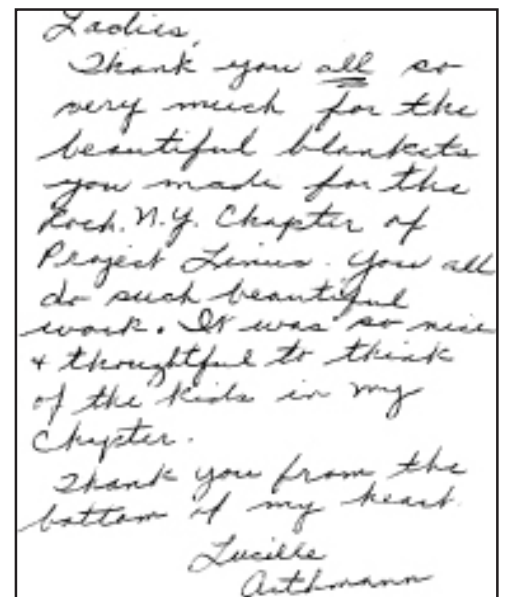 Ladies,
Thank you all so
very much for the
beautiful blankets
you made for the
Roch. N.Y. Chapter of
Project Linus. You all
do such beautiful
work. It was so nice
+ thoughtful to think
of the kids in my
Chapter.
Thank you from the
bottom of my heart.
Lucille
Arthmann